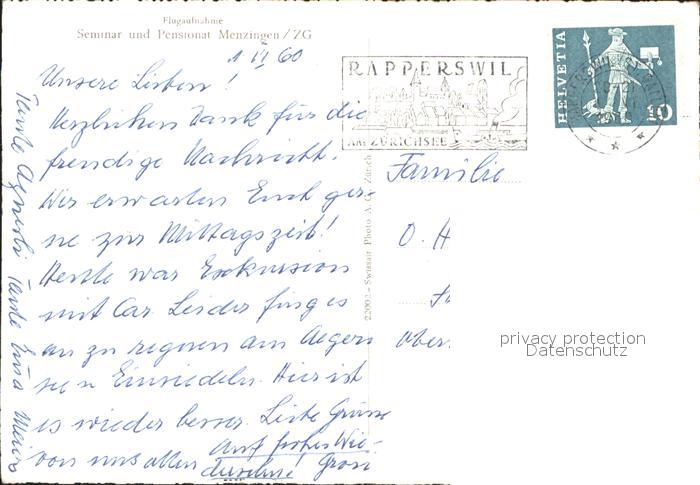 Flugaufnahme
Seminar und Pensionat Menzingen/ZG
1. VI 60
Unsere Lieben!
Herzlichen Dank für die
freudige Nachricht.
Wir erwarten Euch ger-
ne zur Mittagszeit!
Heute war Exkursion
mit Car. Leider fing es
an zu regnen am Aegeri
see u Einsiedeln. Hier ist
es wieder besser. Liebe Grüsse
von uns allen
auf frohes Wie-
dersehn!
Tante
Tante
RAPPERSWIL
AM ZÜRICHSEE
HELVETIA
10
22002 - Swissair Photo A.G. Zürich
Familie
O. H
Ober
privacy protection
Datenschutz